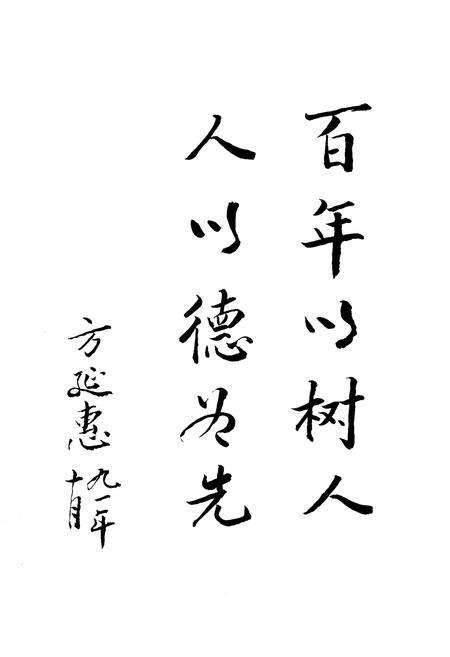 百年以树人
人以德为先
方延惠
九一年
十月